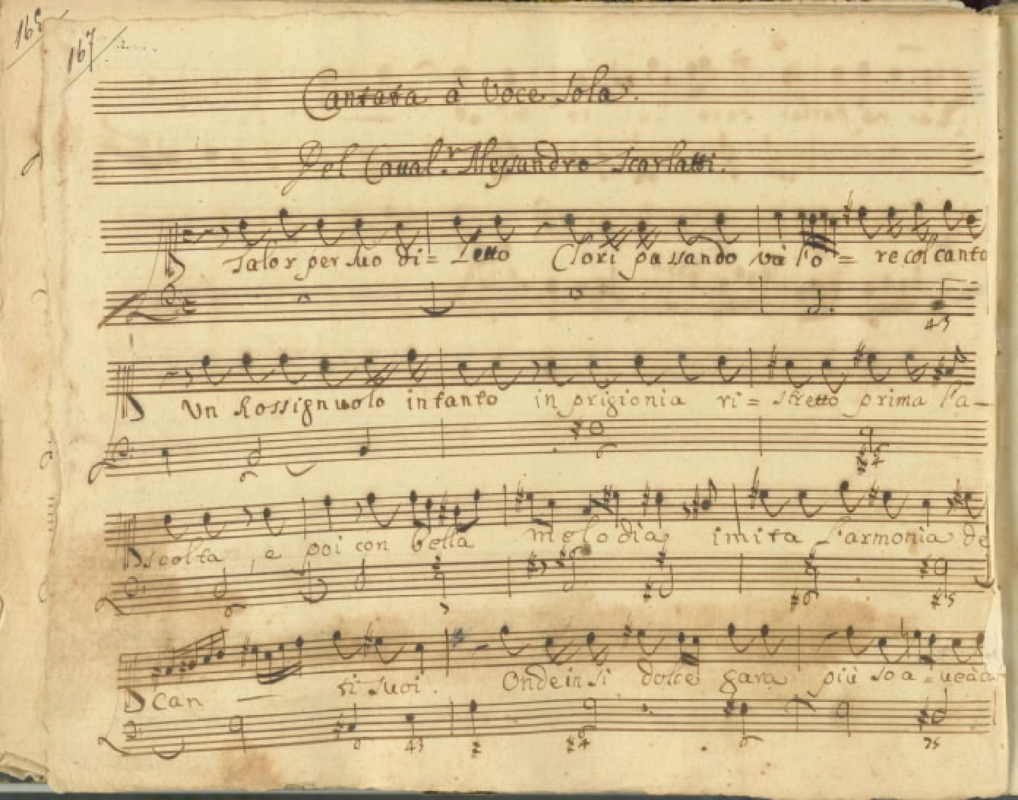 167
Cantata à Voce sola.
Del Caual.r Alessandro Scarlatti.
Talor per suo di= letto Clori passando và l'o = re col canto
43
Un Rossignuolo intanto in prigionia ri= stretto prima l'a-
6 6
scolta e poi con bella melodia imita l'armonia de
6
Can ti suoi. Onde in sì dolce gara più soa = ue
6 43 6